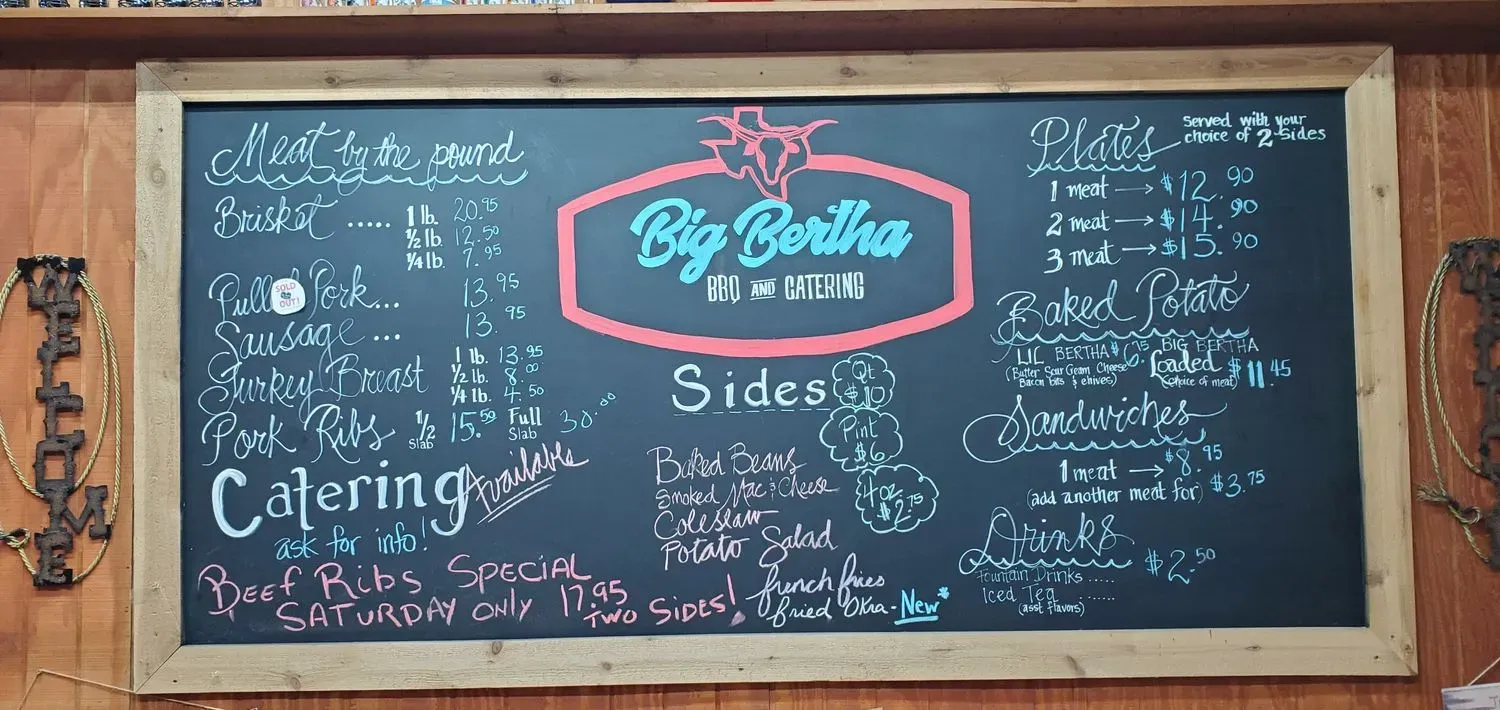 Meat by the pound
Brisket ..... 1 lb. 20.95
½ lb. 12.50
¼ lb. 7.95
Pull Pork... 13.95
SOLD OUT!
Sausage ... 13.95
Turkey Breast 1 lb. 13.95
½ lb. 8.00
¼ lb. 4.50
Pork Ribs ½ Slab 15.50 Full Slab 30.00
Catering Available
ask for info!
BEEF RIBS SPECIAL
SATURDAY ONLY 17.95
TWO SIDES!
Big Bertha
BBQ AND CATERING
Sides
Qt $10
Pint $6
4 oz. $2.75
Baked Beans
Smoked Mac & Cheese
Coleslaw
Potato Salad
french fries
fried Okra - New*
Plates served with your
choice of 2 sides
1 meat → $12.90
2 meat → $14.90
3 meat → $15.90
Baked Potato
LIL BERTHA $6.75
(Butter Sour Cream Cheese
Bacon bits & chives)
BIG BERTHA
Loaded $11.45
(choice of meat)
Sandwiches
1 meat → $8.95
(add another meat for) $3.75
Drinks $2.50
Fountain Drinks .....
Iced Tea ......
(asst flavors)
WELCOME